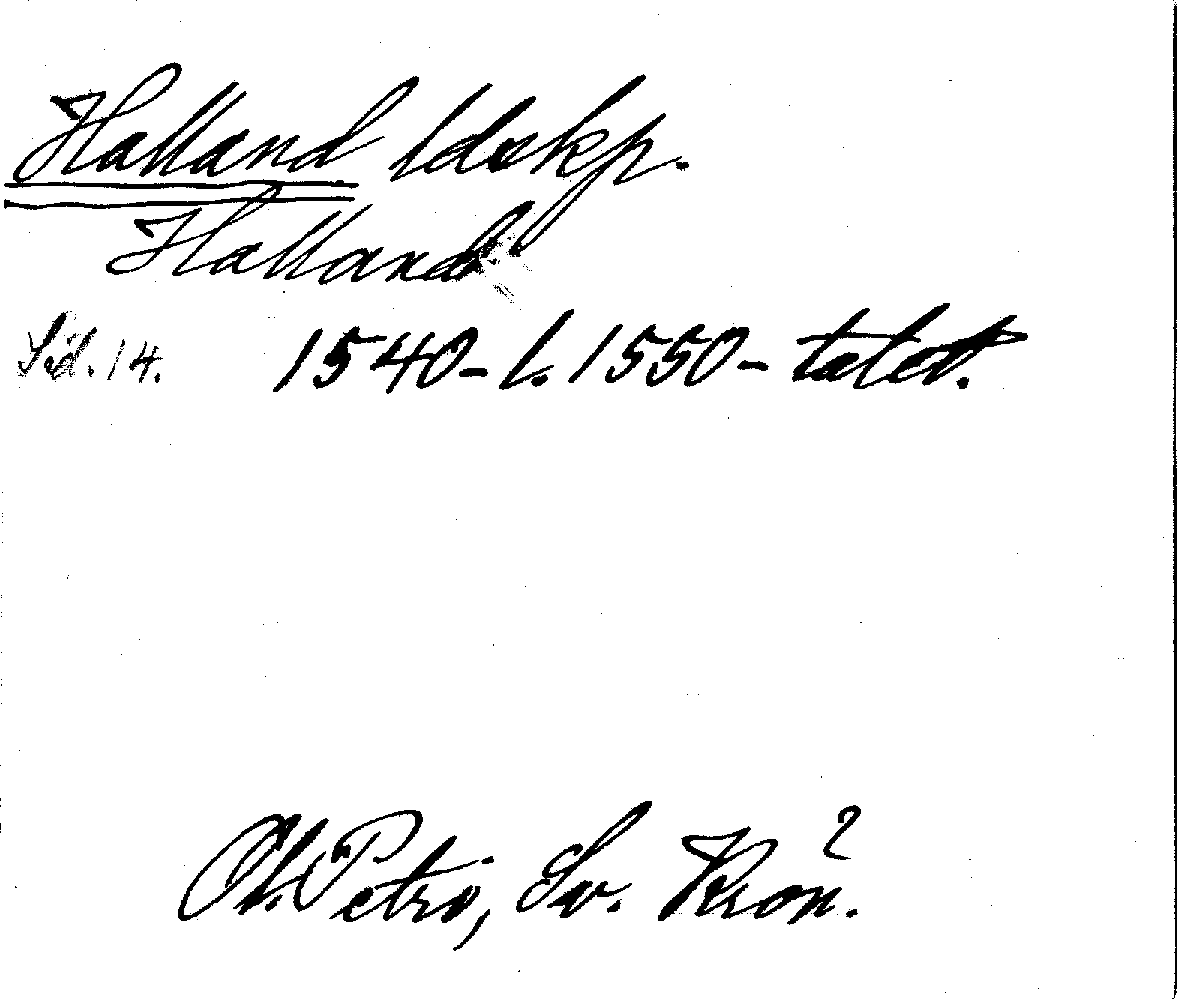 Halland ldskp.
Halland
Sid. 14. 1540- l. 1550-talet.
Ol. Petri, Sv. Krön.²